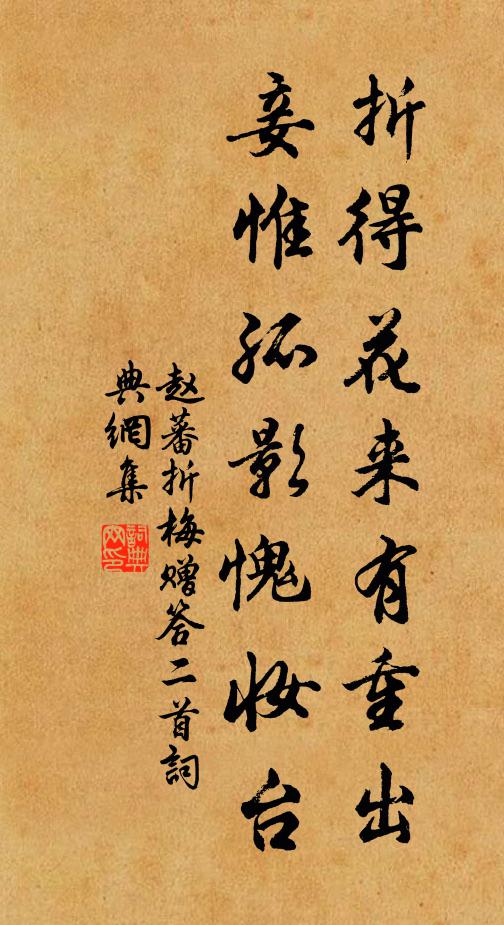 折得花来有重出
妾惟孤影愧妆台
赵蕃折梅赠答二首詞
典網集
詞典网印